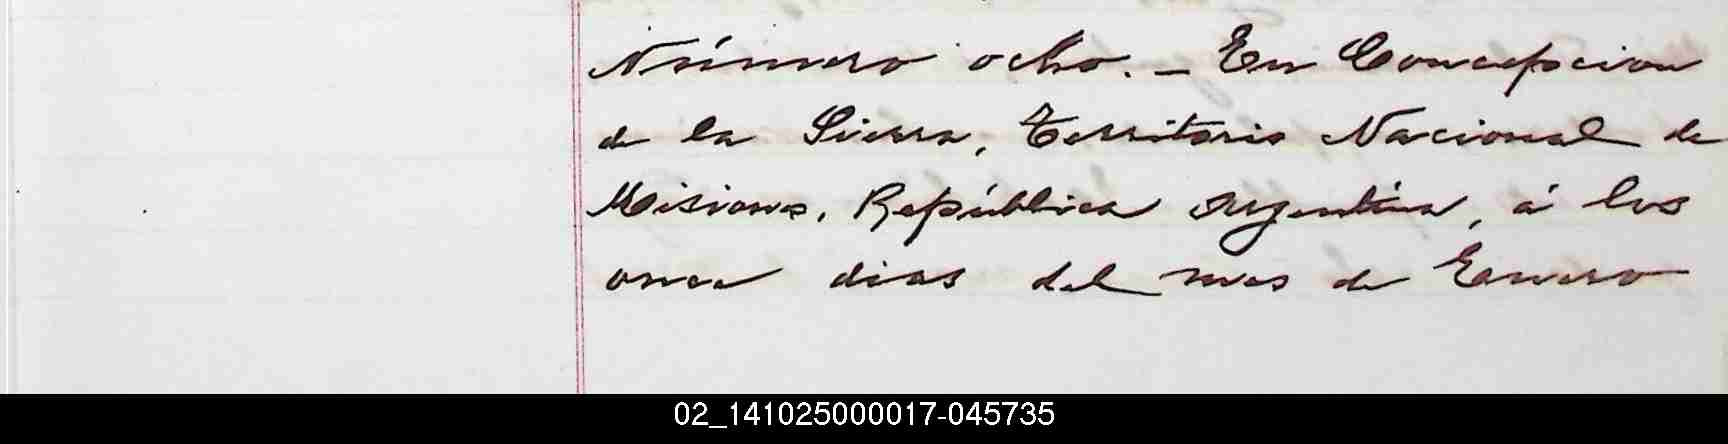 Número ocho. — En Concepcion
de la Sierra, Territorio Nacional de
Misiones, República Argentina, á los
once dias del mes de Enero
02_141025000017-045735